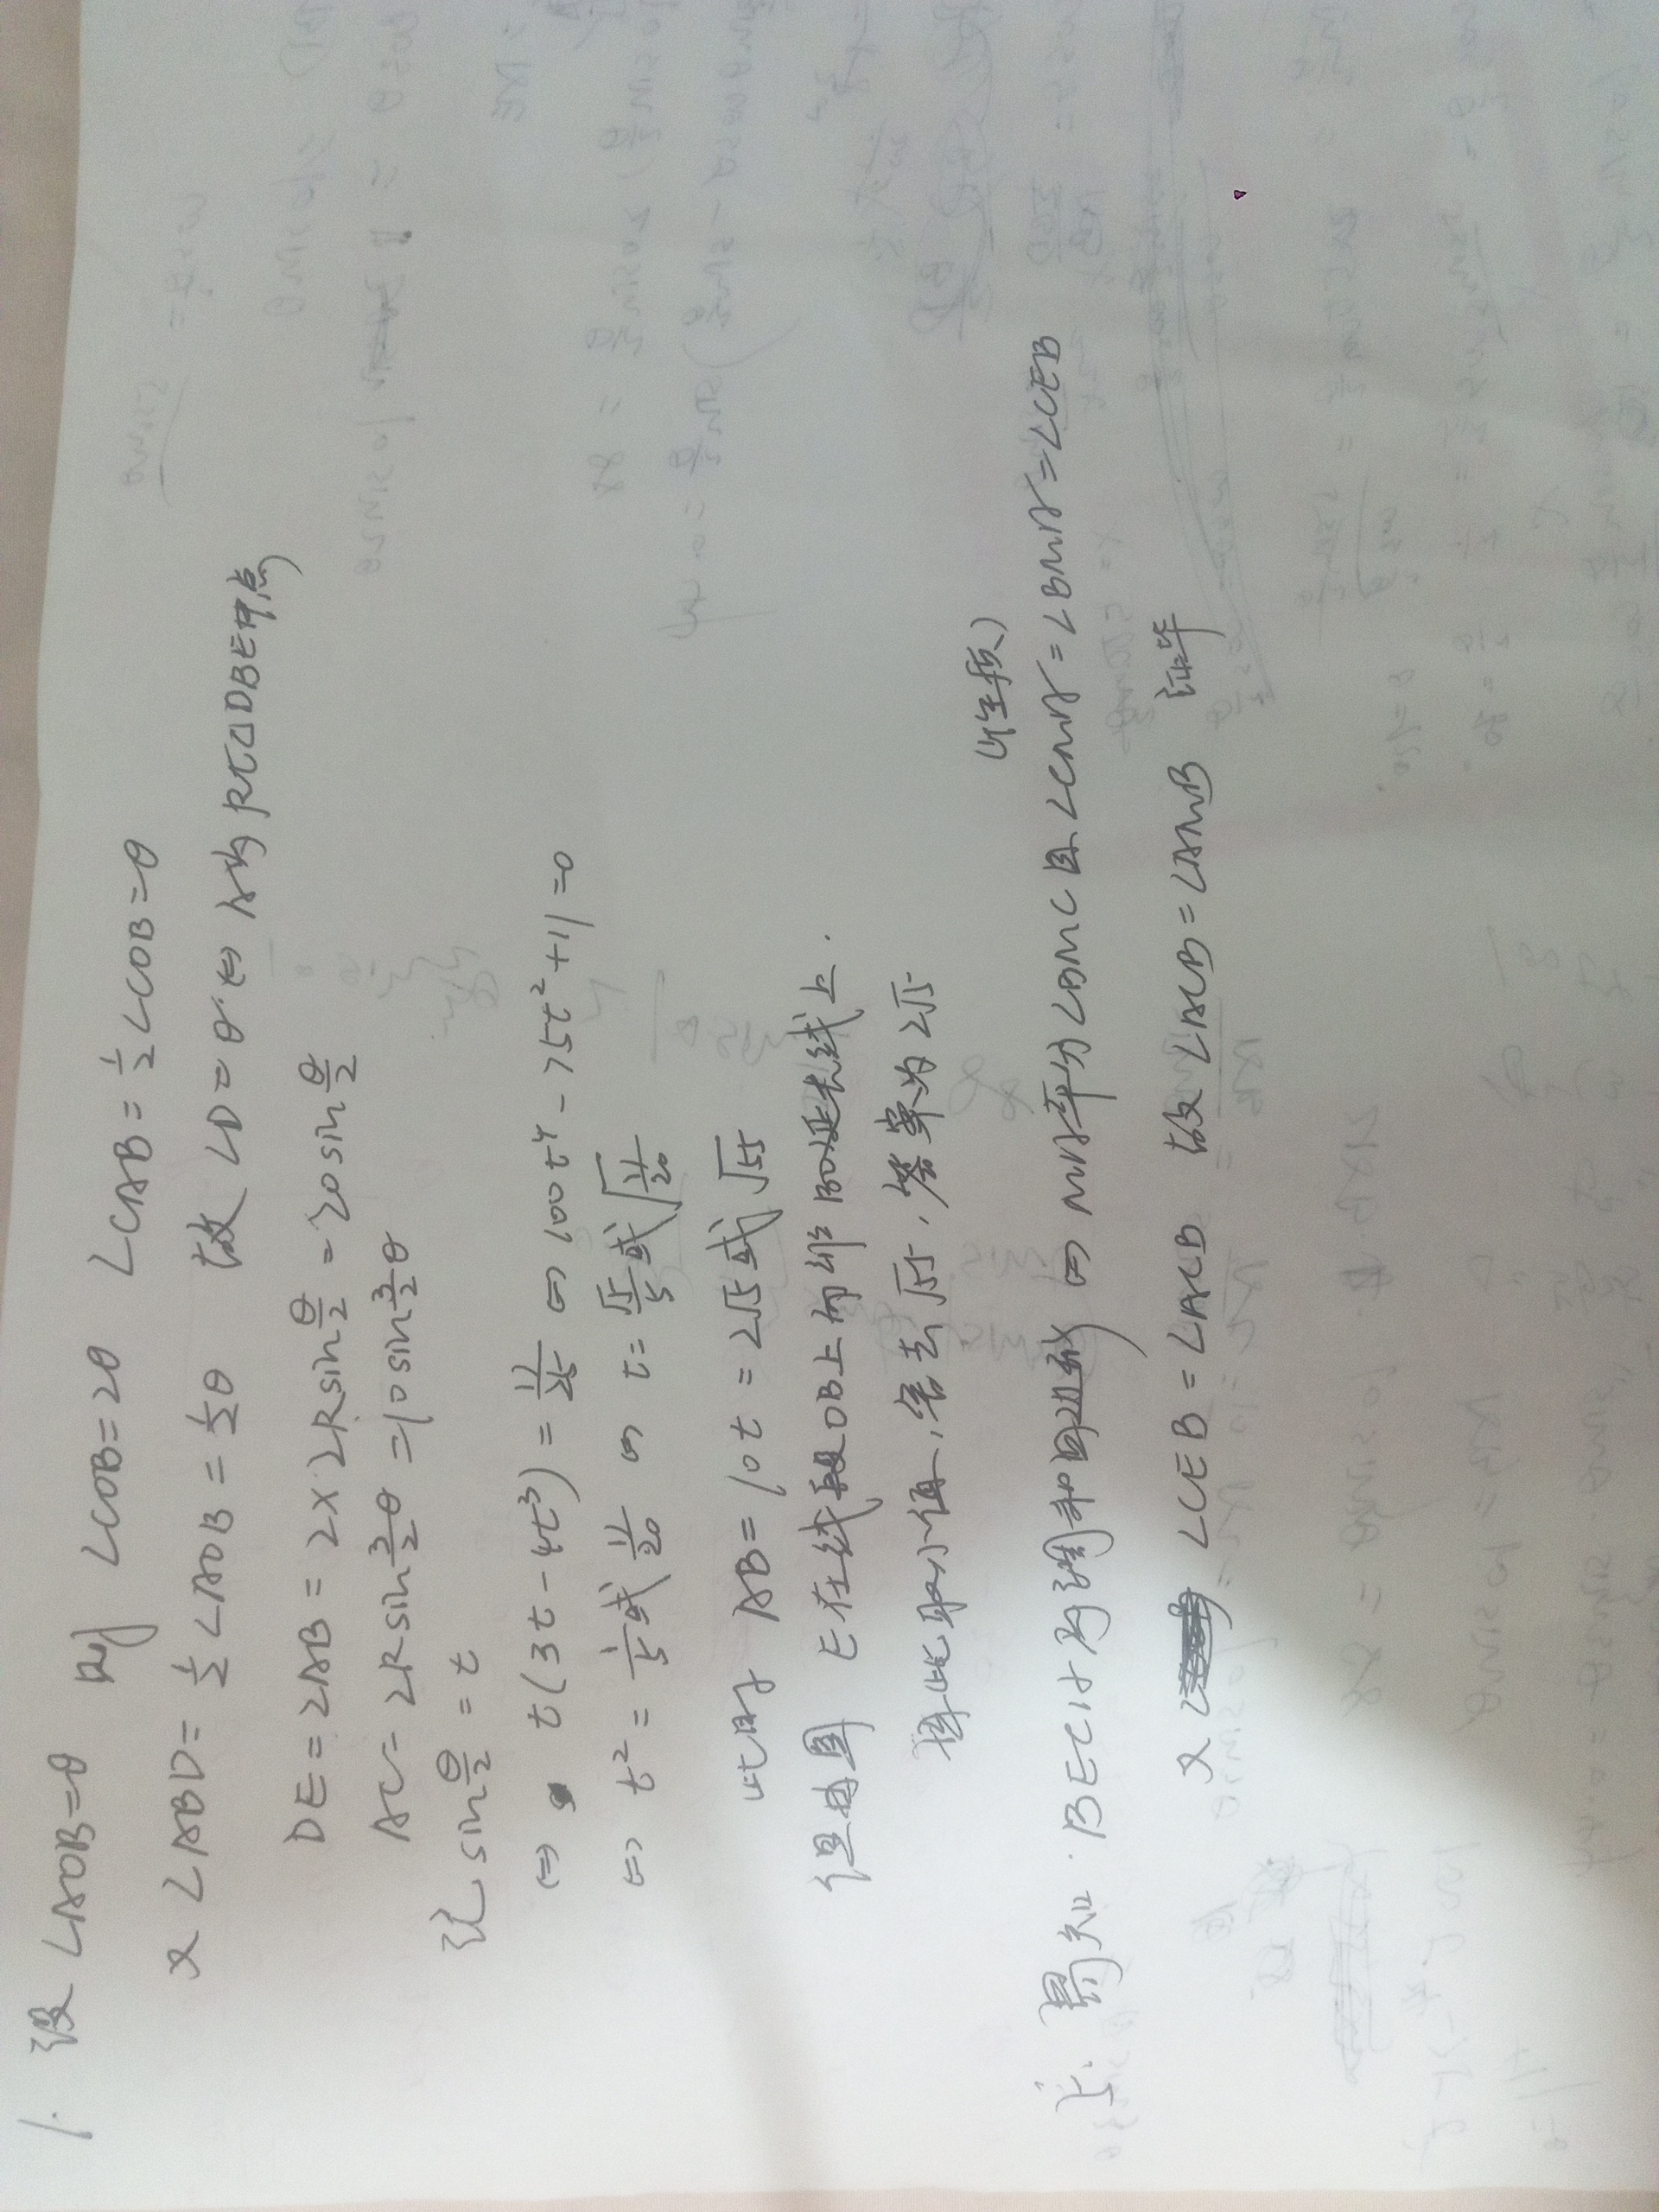 1. 设∠AOB=θ 则 ∠COB=2θ ∠CAB=½∠COB=θ
又∠ABD=½∠AOB=½θ 故∠D=θ ⇔ A为Rt△DBE中点
DE=2AB=2×2Rsin θ/2=20sin θ/2
AC=2Rsin 3/2 θ=10sin 3/2 θ
记 sin θ/2=t
⇔ t(3t-4t³)=11/25 ⇔ 100t⁴-75t²+11=0
⇔ t²=1/5或11/20 ⇔ t=√5/5或√(11/20)
此时 AB=10t=2√5或√55
但由图 E在线段OB上而非BO延长线上.
因此取小值,舍去√55,答案为2√5
5. 易知 BECM为调和四边形 ⇔ MA平分∠BMC且∠CMA=∠BMA=∠CEB
又∠CEB=∠ACB 故∠ACB=∠AMB 证毕